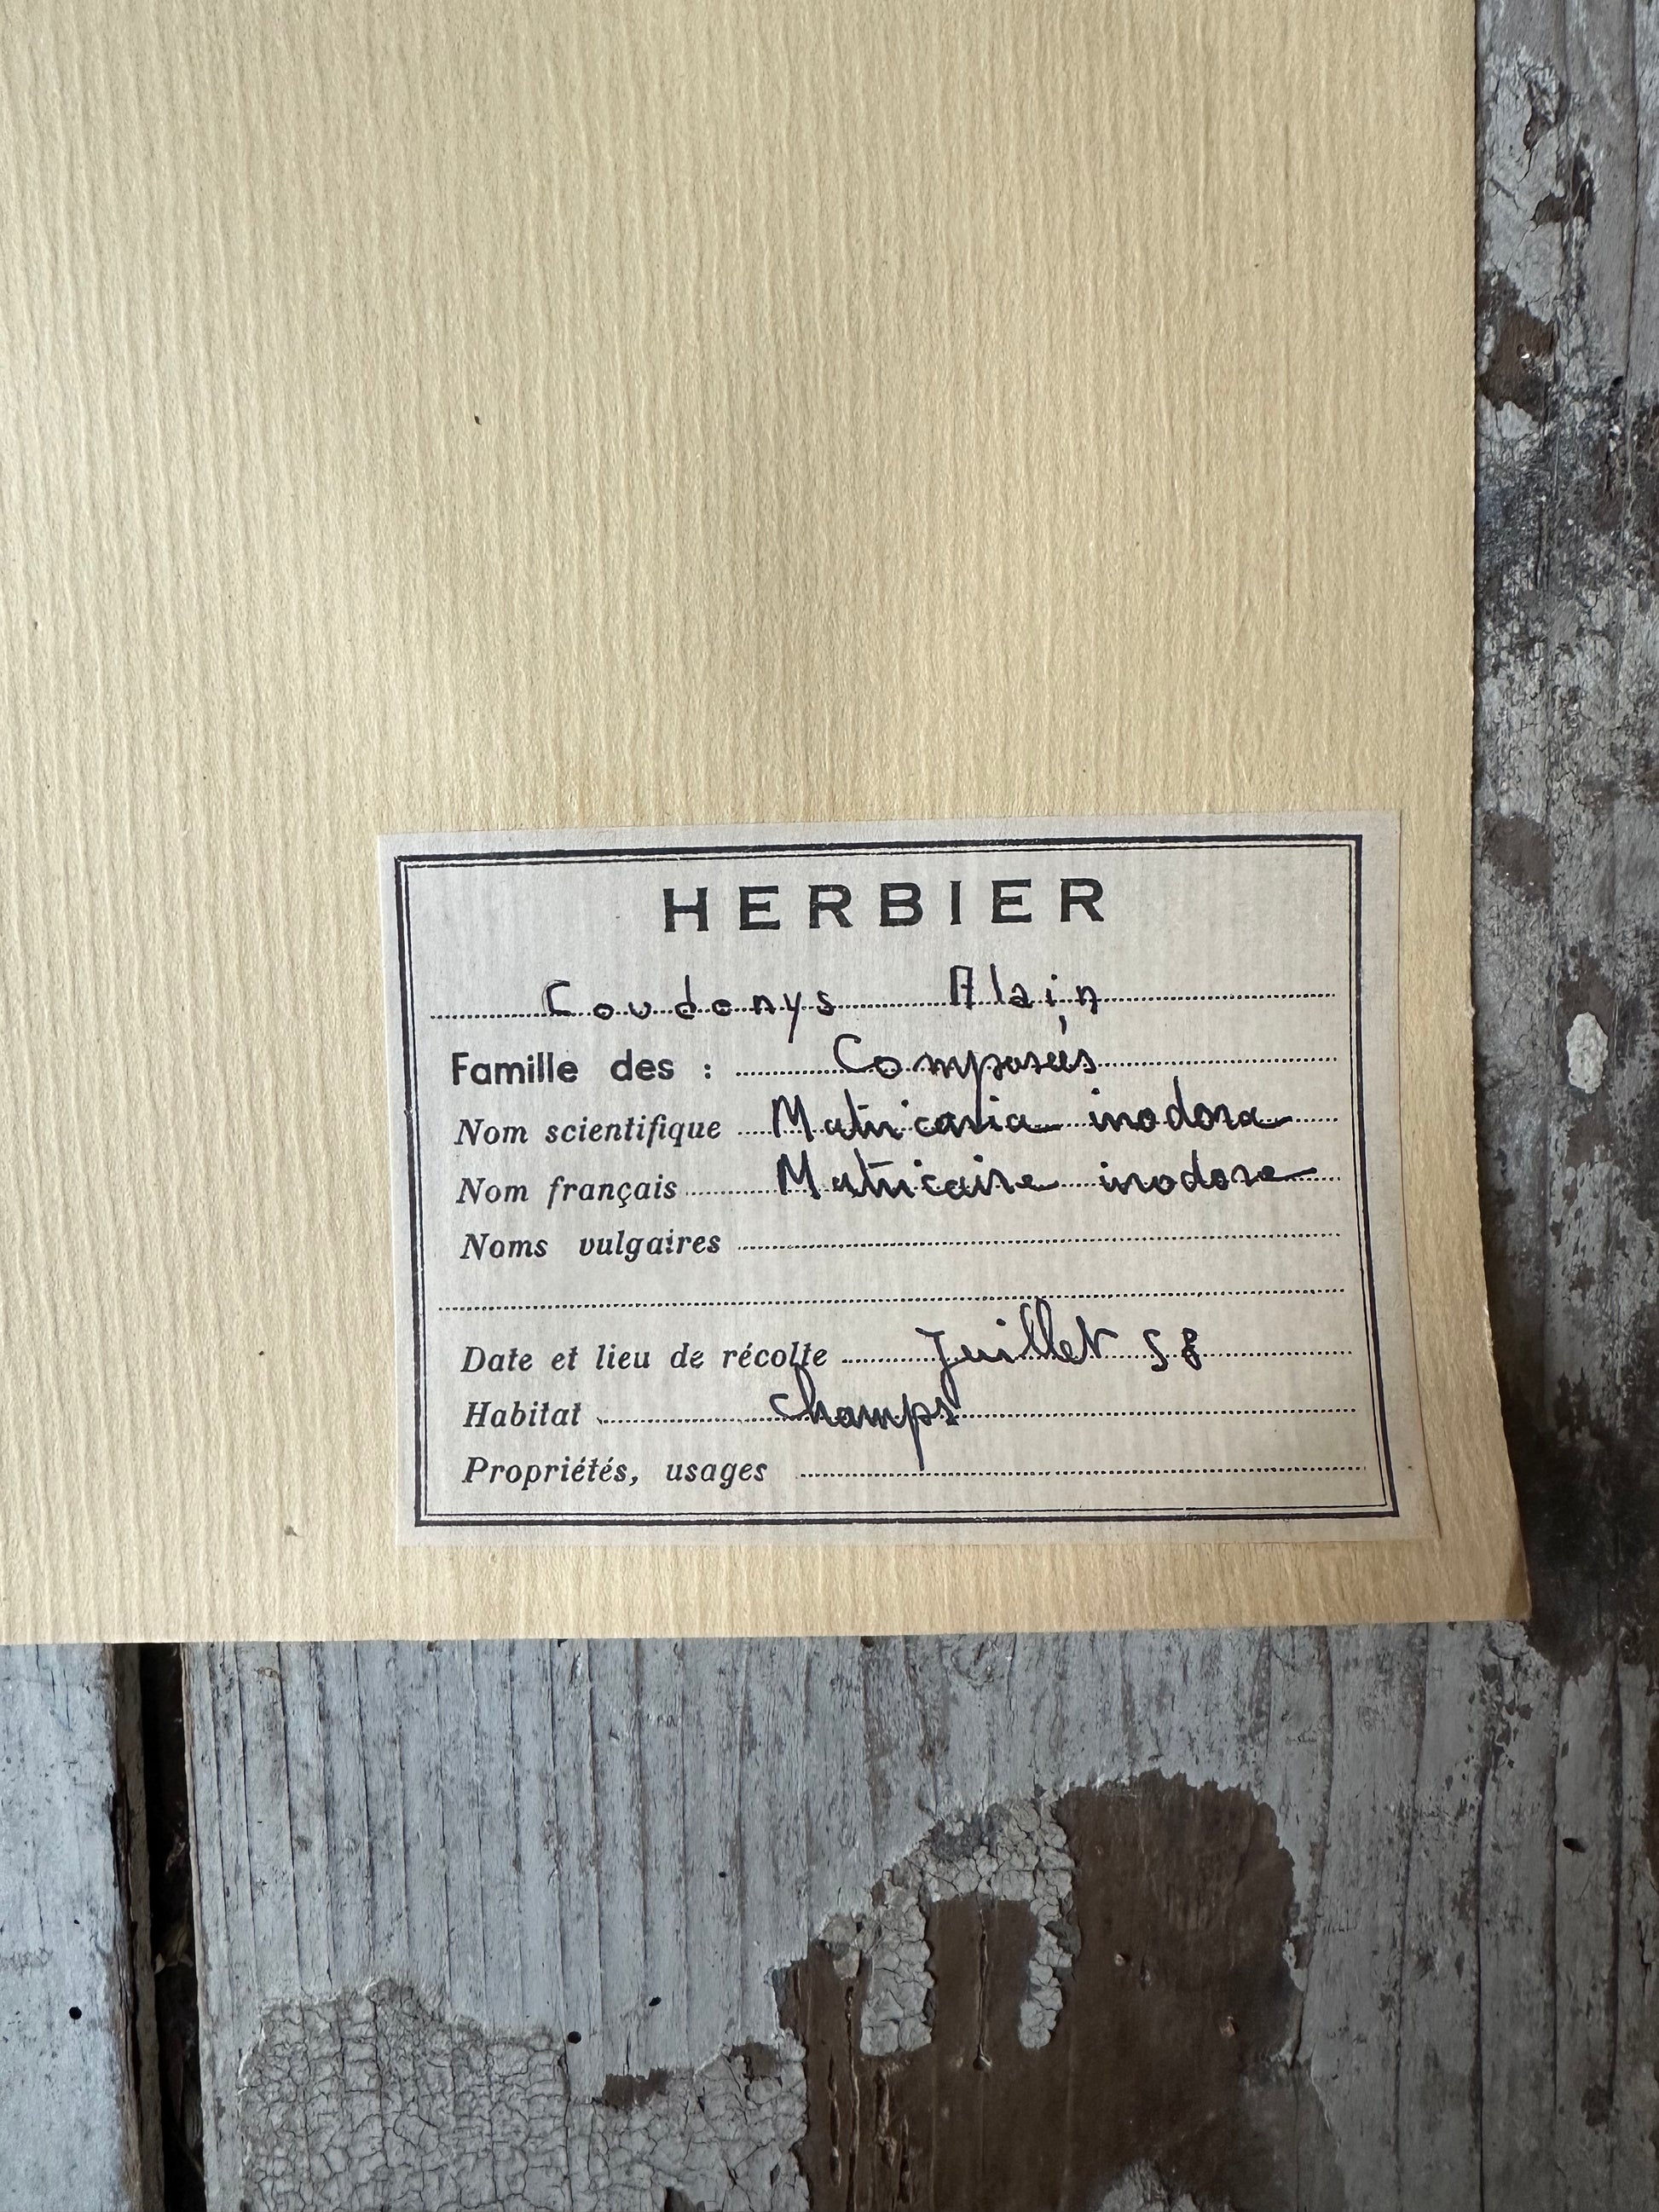 HERBIER
Coudenys Alain
Famille des : Composées
Nom scientifique Matricaria inodora
Nom français Matricaire inodore
Noms vulgaires
Date et lieu de récolte Juillet 58
Habitat champs
Propriétés, usages